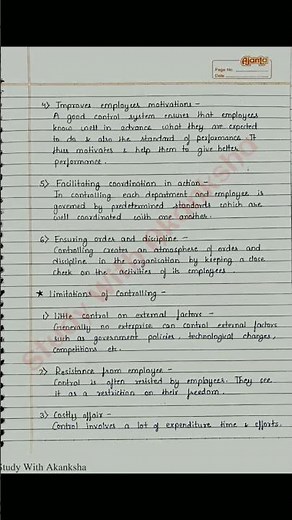 Ajanta
Page No.
Date
4) Improves employees motivations -
A good control system ensures that employees
know well in advance what they are expected
to do & also the standard of performance. It
thus motivates & help them to give better
performance.
5) Facilitating coordination in action -
In controlling each department and employee is
governed by predetermined standards which are
well coordinated with one another.
6) Ensuring order and discipline -
Controlling creates an atmosphere of order and
discipline in the organisation by keeping a close
check on the activities of its employees.
★ Limitations of Controlling -
1) little control on external factors -
Generally no enterprise can control external factors
such as government policies, technological changes,
competitions etc.
2) Resistance from employee -
Control is often resisted by employees. They see
it as a restriction on their freedom.
3) Costly affair -
Control involves a lot of expenditure time & efforts.
Study With Akanksha
Study With Akanksha